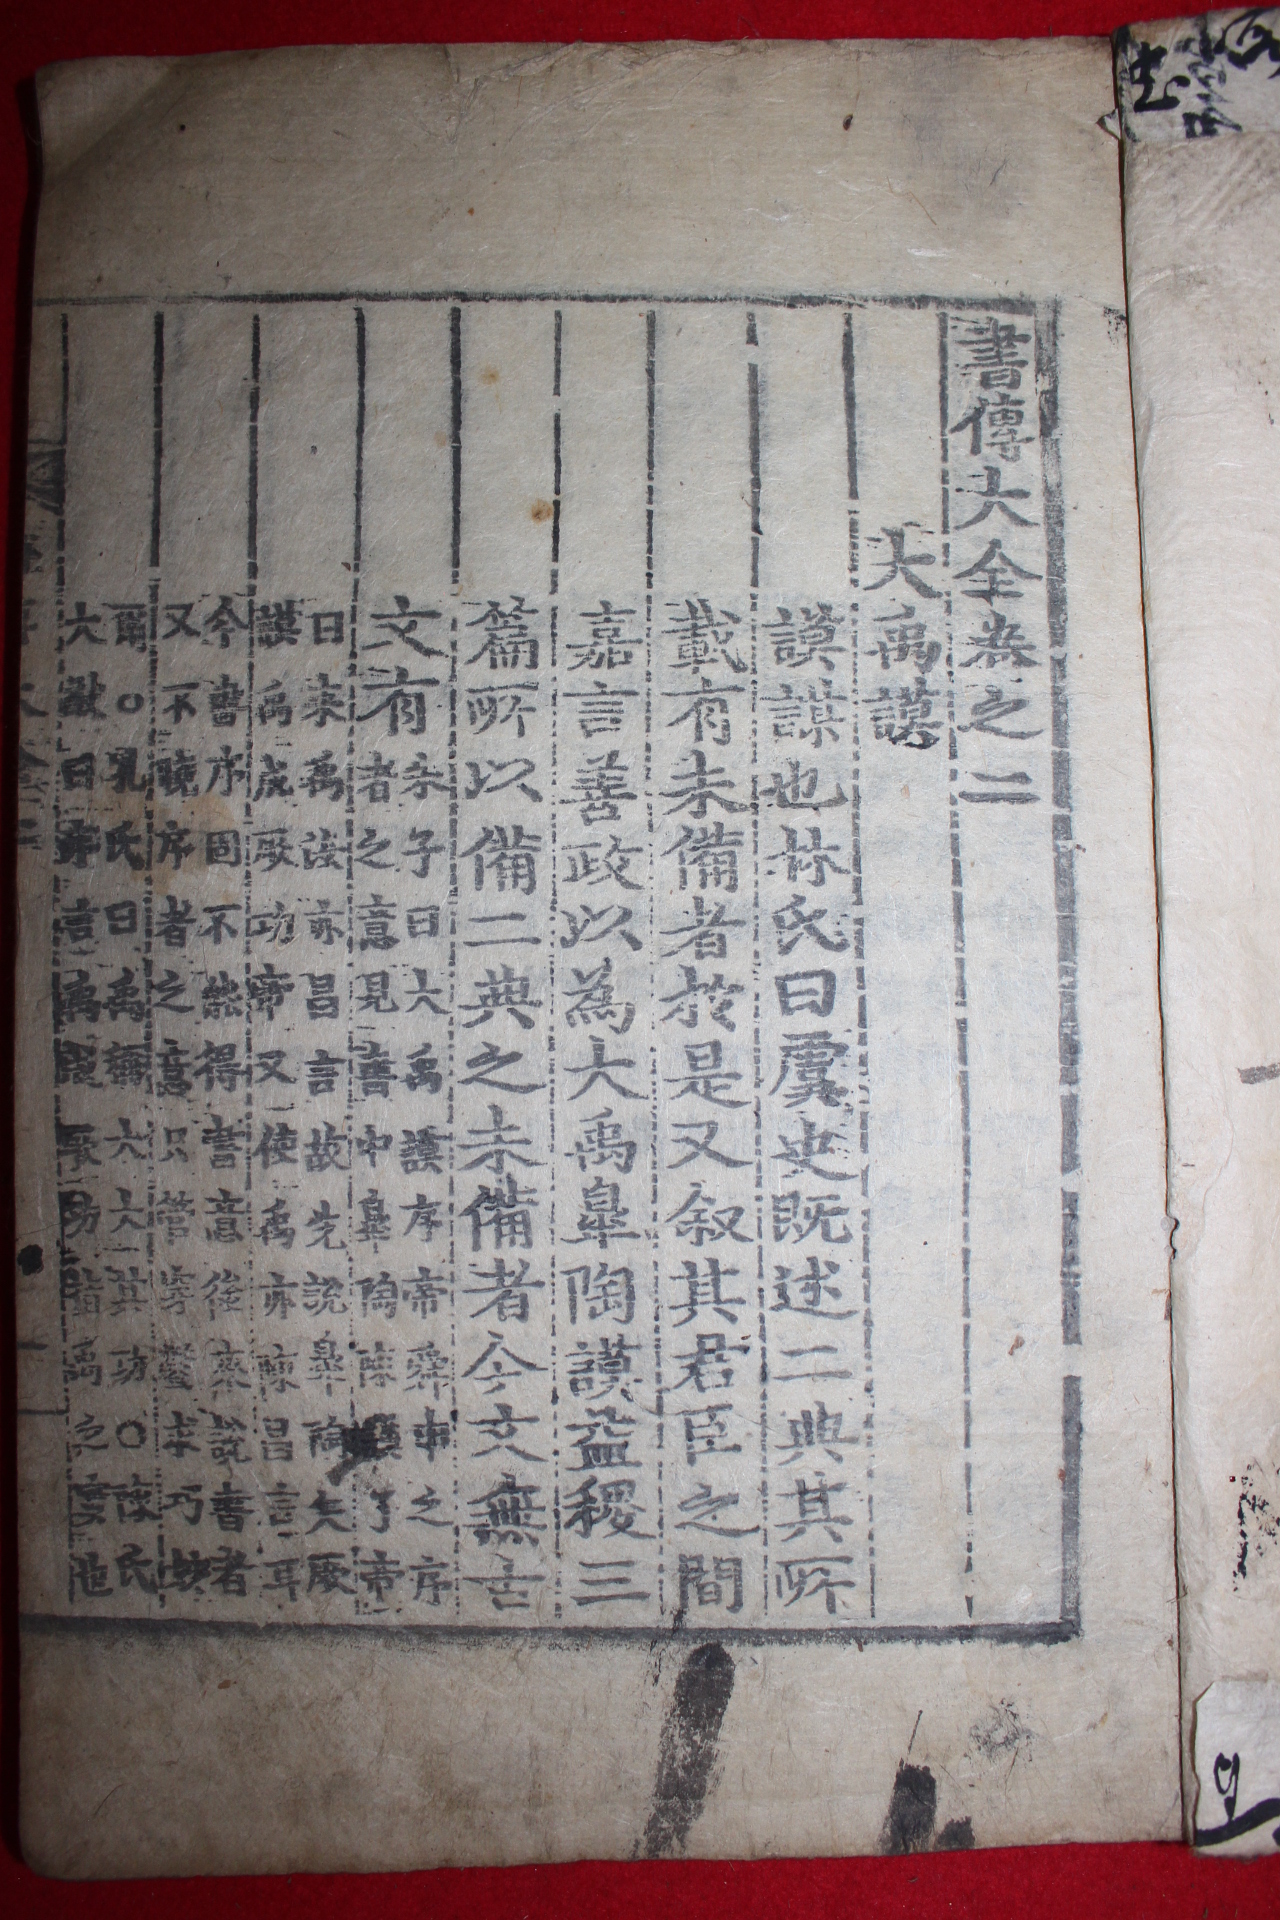 書傳大全卷之二
大禹謨
謨謀也林氏曰虞史既述二典其所
載有未備者於是又叙其君臣之間
嘉言善政以為大禹皐陶謨益稷三
篇所以備二典之未備者今文無古
文有
朱子曰大禹謨序帝舜申之序
者之意見書中皐陶陳謨了帝
曰來禹汝亦昌言故先說皐陶矢厥
謨禹成厥功帝又使禹亦陳昌言耳
今書序固不能得書意後來說書者
又不曉序者之意只管穿鑿求巧妙
爾○孔氏曰禹稱大大其功○陳氏
大猷曰序言禹成厥功